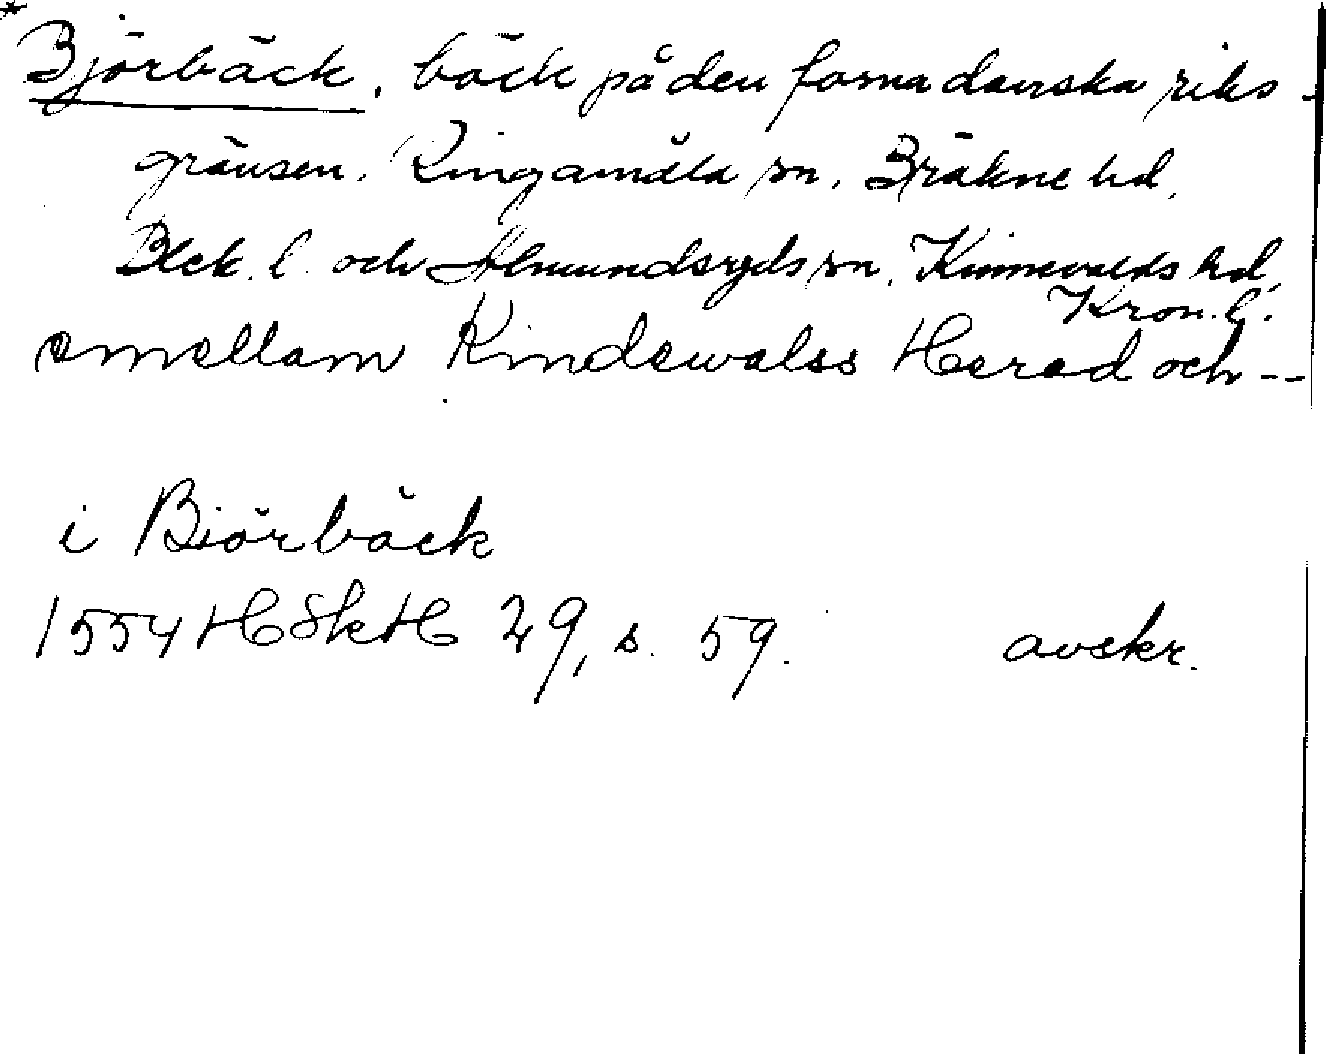 *
Björbäck, bäck på den forna danska riks-
gränsen. Ringamåla sn. Bräkne hd.
Blek. l. och Almundsryds sn, Kinnevalds hd,
Kron. l.
emellam Kindewalss Herad och --
i Biörbäck
1554 HSkH 29, s. 59. avskr.